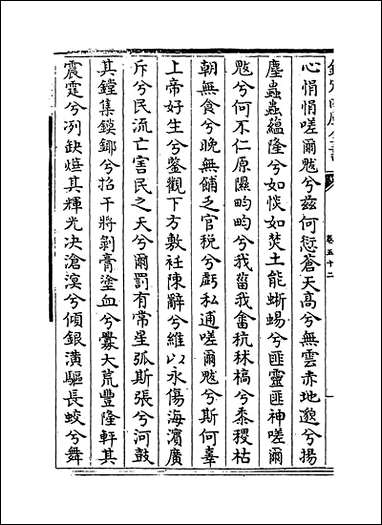 欽定四庫全書
卷五十二
心悁悁嗟爾魃兮兹何愆蒼天高兮無雲赤地邈兮揚
塵蟲蟲蘊隆兮如惔如焚土能蜥蜴兮匪靈匪神嗟爾
魃兮何不仁原隰畇畇兮我菑我畬秔秫槁兮黍稷枯
朝無食兮晚無餔乏官税兮虧私逋嗟爾魃兮斯何辜
上帝好生兮鑒觀下方敷衽陳辭兮維以永傷海濱廣
斥兮民流亡害民之天兮爾罰有常星弧斯張兮河鼓
其鏜集鏌鎁兮招干將剝膏塗血兮釁大荒豐隆軒其
震霆兮冽缺焙其輝光決滄溟兮傾銀潢驅長蛟兮舞